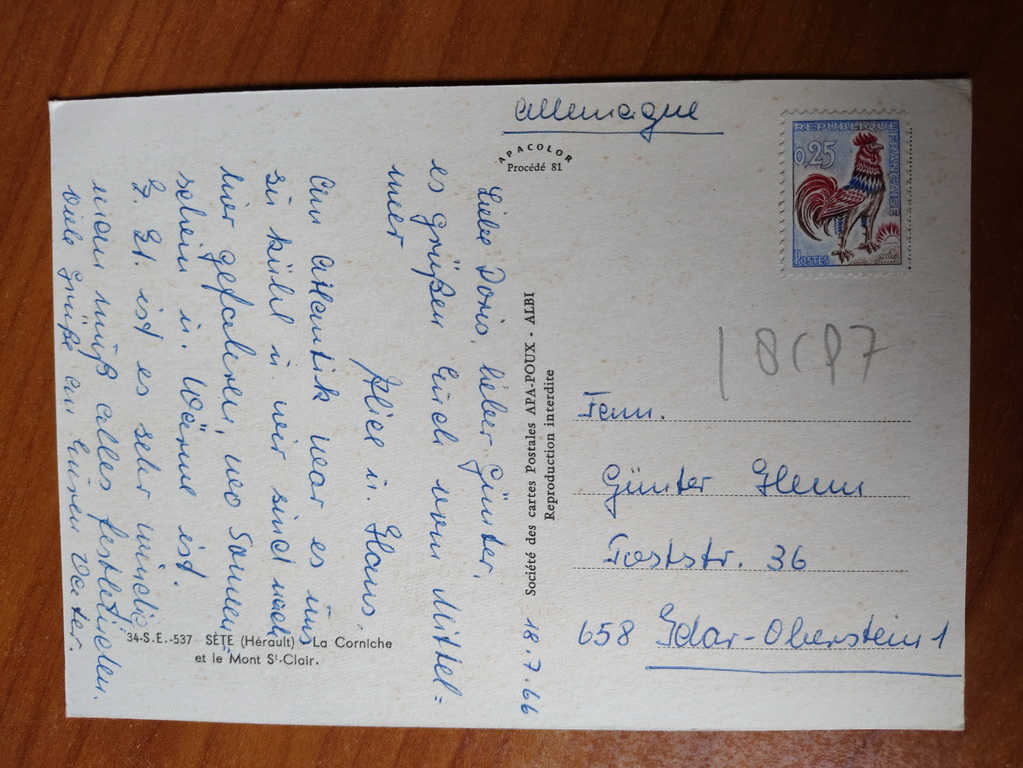 Allemagne
APACOLOR
Procédé 81
REPUBLIQUE
FRANÇAISE
0,25
POSTES
18.7.66
Liebe Doris, lieber Günter,
es grüßen Euch vom Mittel=
meer
Alice u. Hans.
Am Atlantik war es uns
zu kühl u. wir sind nach
hier gefahren, wo Sonnen
schein u. Wärme ist.
Z. Zt. ist es sehr windig
man muß alles festbinden.
Viele Grüße an Euren Vater.
34-S.E.-537 SÈTE (Hérault) - La Corniche
et le Mont St-Clair.
Société des cartes Postales APA-POUX - ALBI
Reproduction interdite
Fam.
Günter
36
658 Idar-Oberstein 1